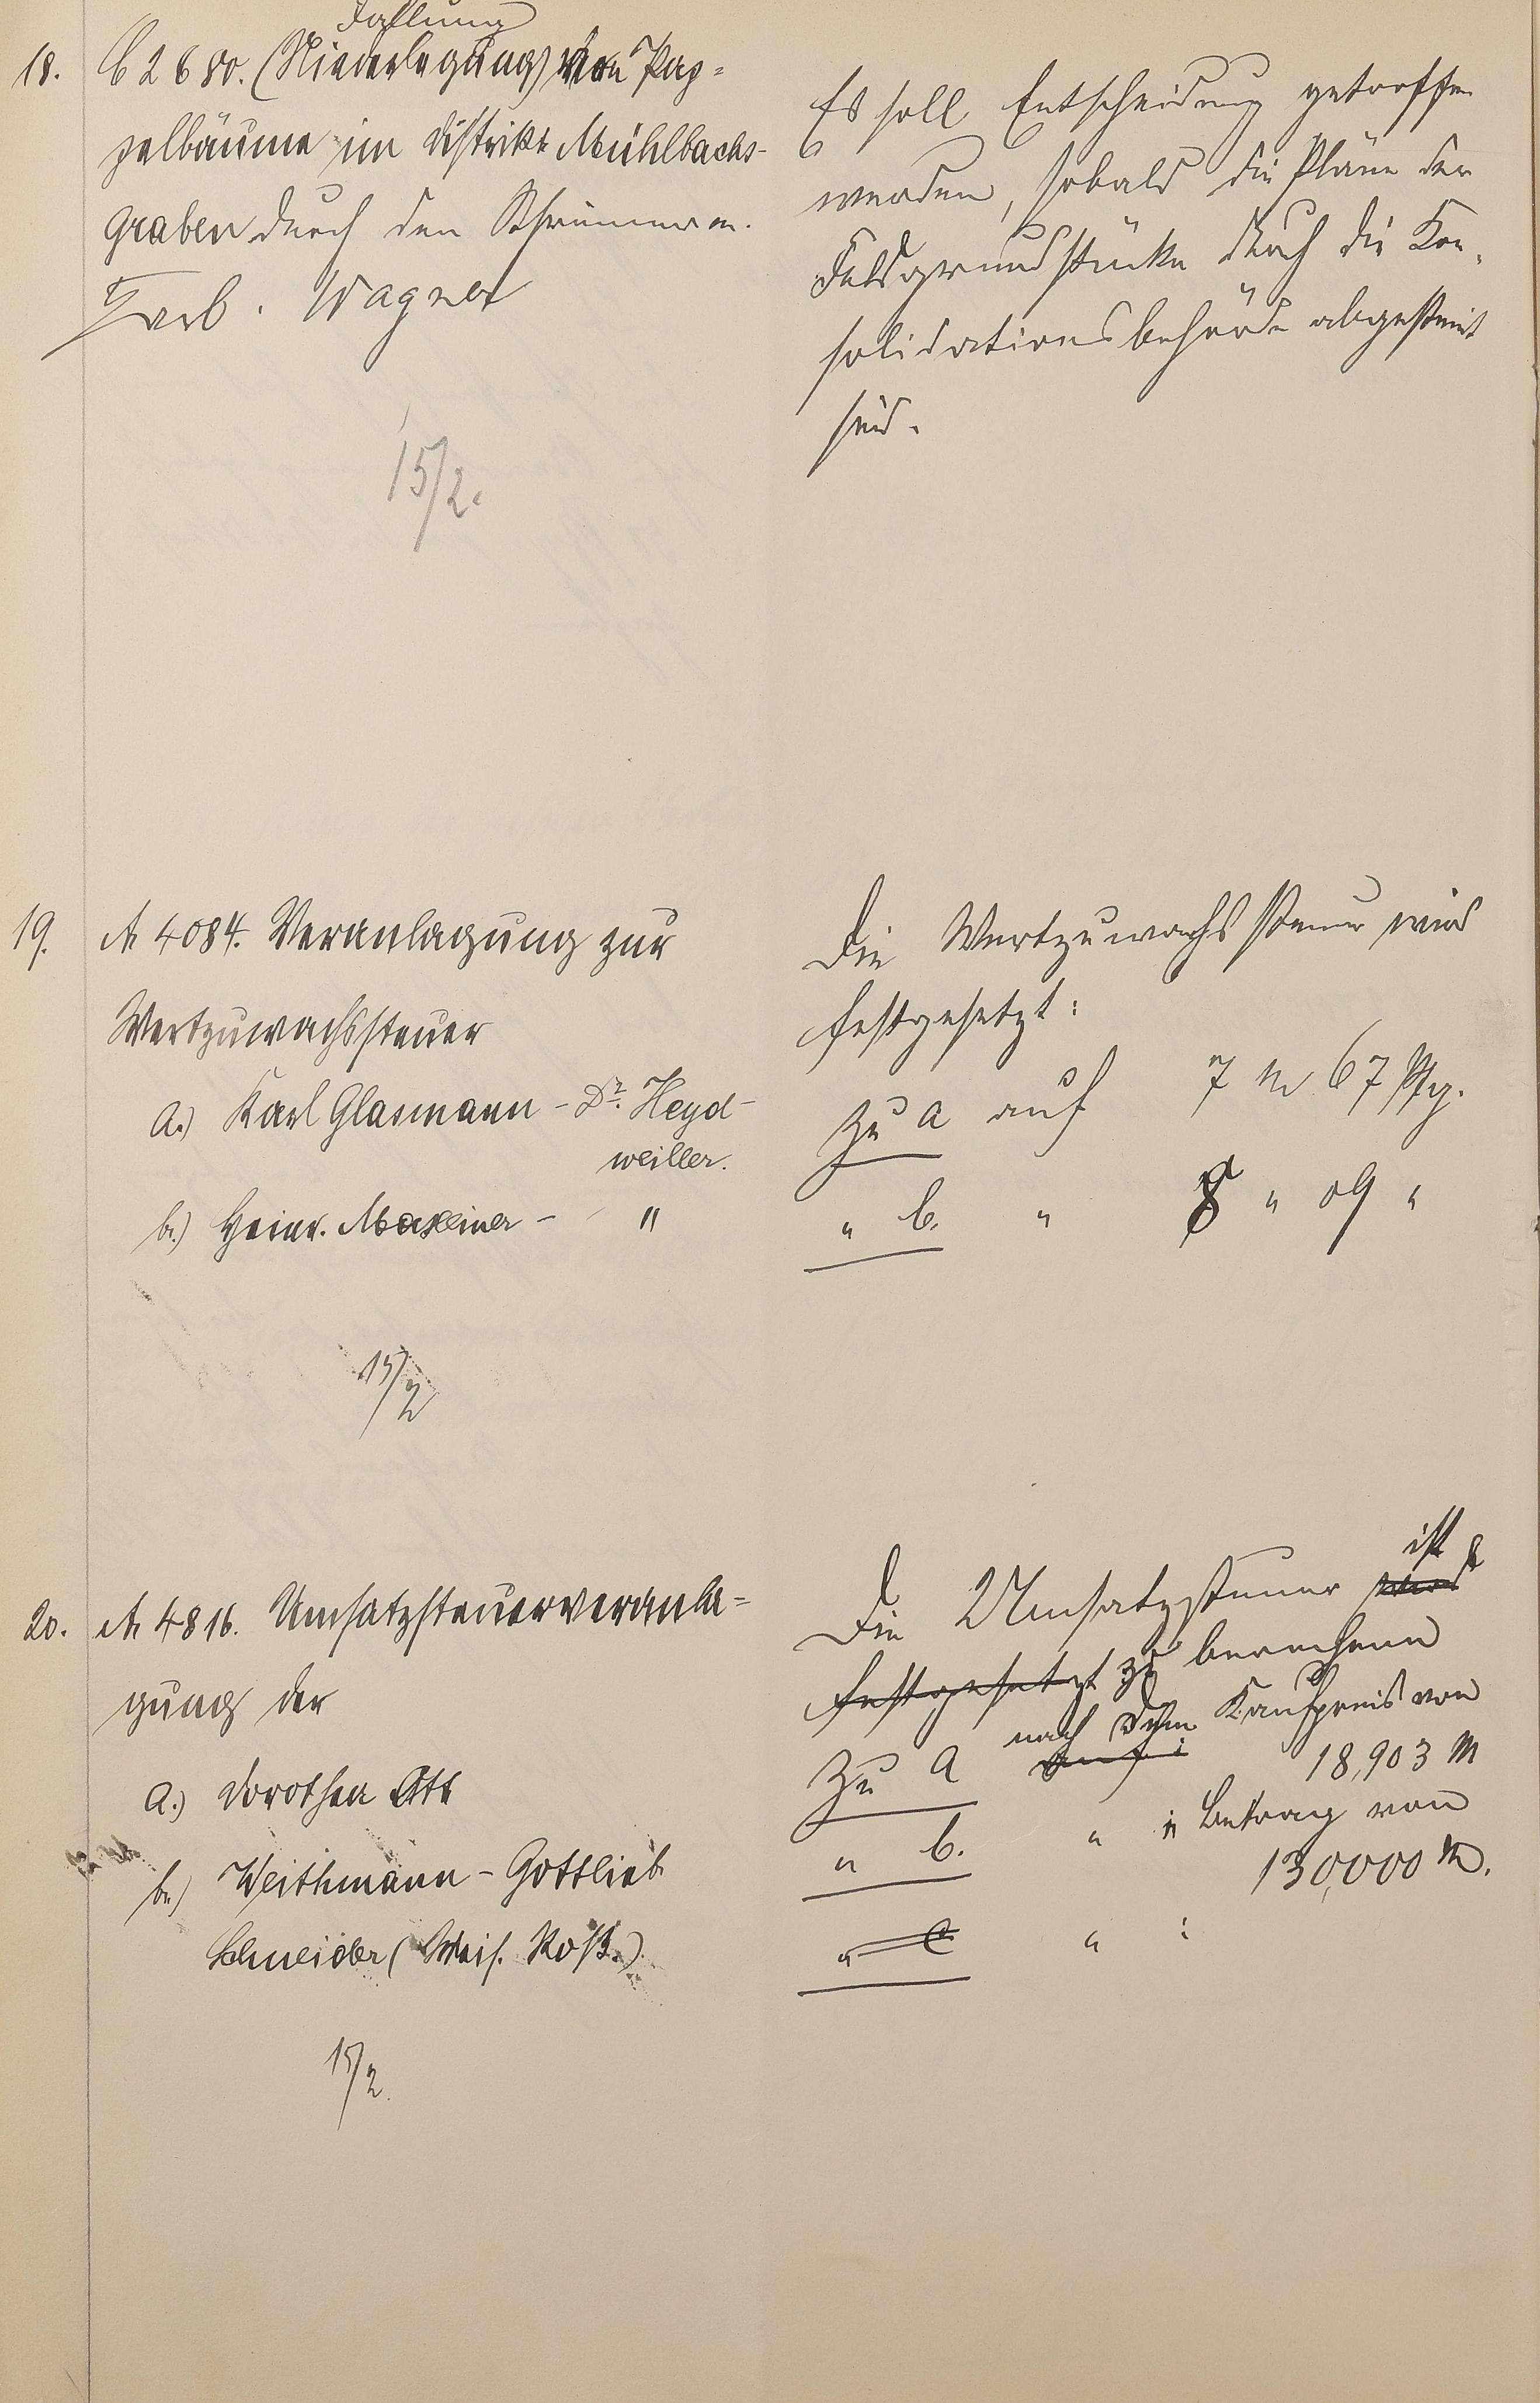 Fällung
18. C 2680. (Niederlegung) von Pap=
pelbäume im Distrikt Mühlbachs-
graben durch den
Farb. Wagner
15/2.
Es soll Entscheidung getroffen
werden, sobald die Pläne der
Feldgrundstücke durch die Kon-
solidationsbehörde abgesteint
sind.
19. A 4084. Veranlagung zur
Wertzuwachssteuer
a.) Karl Glasmann - Dr. Heyd-
weiller.
b.) Heinr. Maxeiner - "
15/2
Die Wertzuwachssteuer wird
festgesetzt:
Zu a auf 7 M 67 Pfg.
" b. " 8 " 09 "
20. A 4816. Umsatzsteuerveranla=
gung der
a.) Dorothea Ott
b.) Weithmann - Gottlieb
Schneider (Weiß. Roß.)
15/2.
ist
Die Umsatzsteuer wird
festgesetzt zu berechnen
nach dem Kaufpreis von
Zu a auf: 18,903 M
" b. " " Betrag von
130,000 M.
" c " :